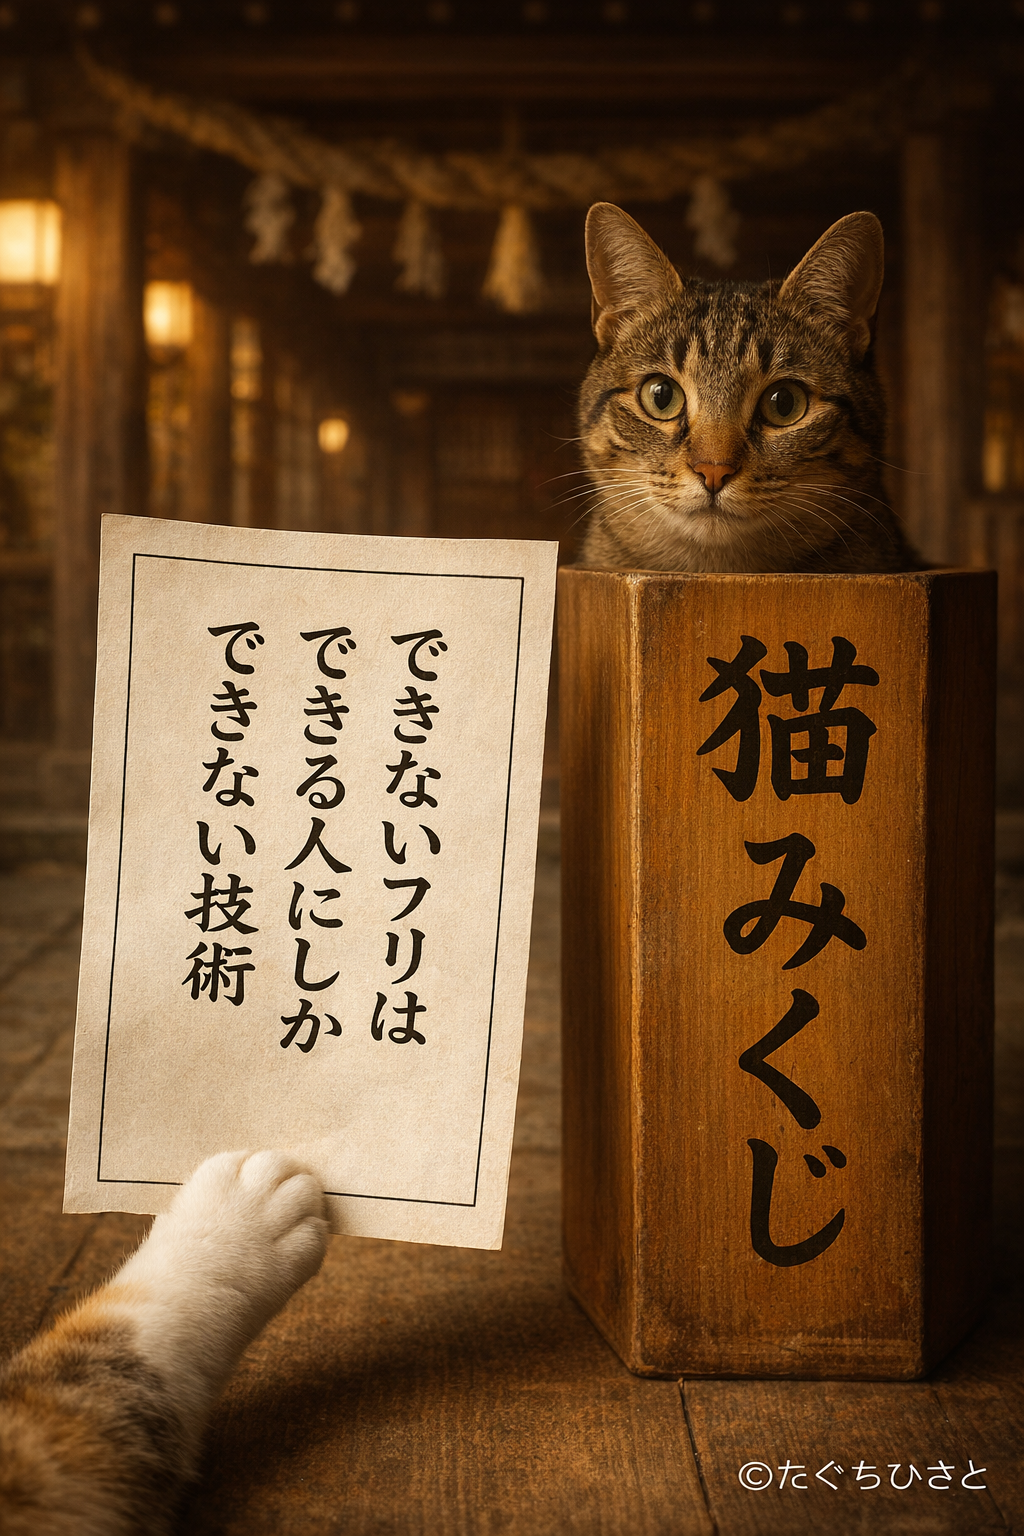 できないフリは
できる人にしか
できない技術
猫みくじ
©たぐちひさと